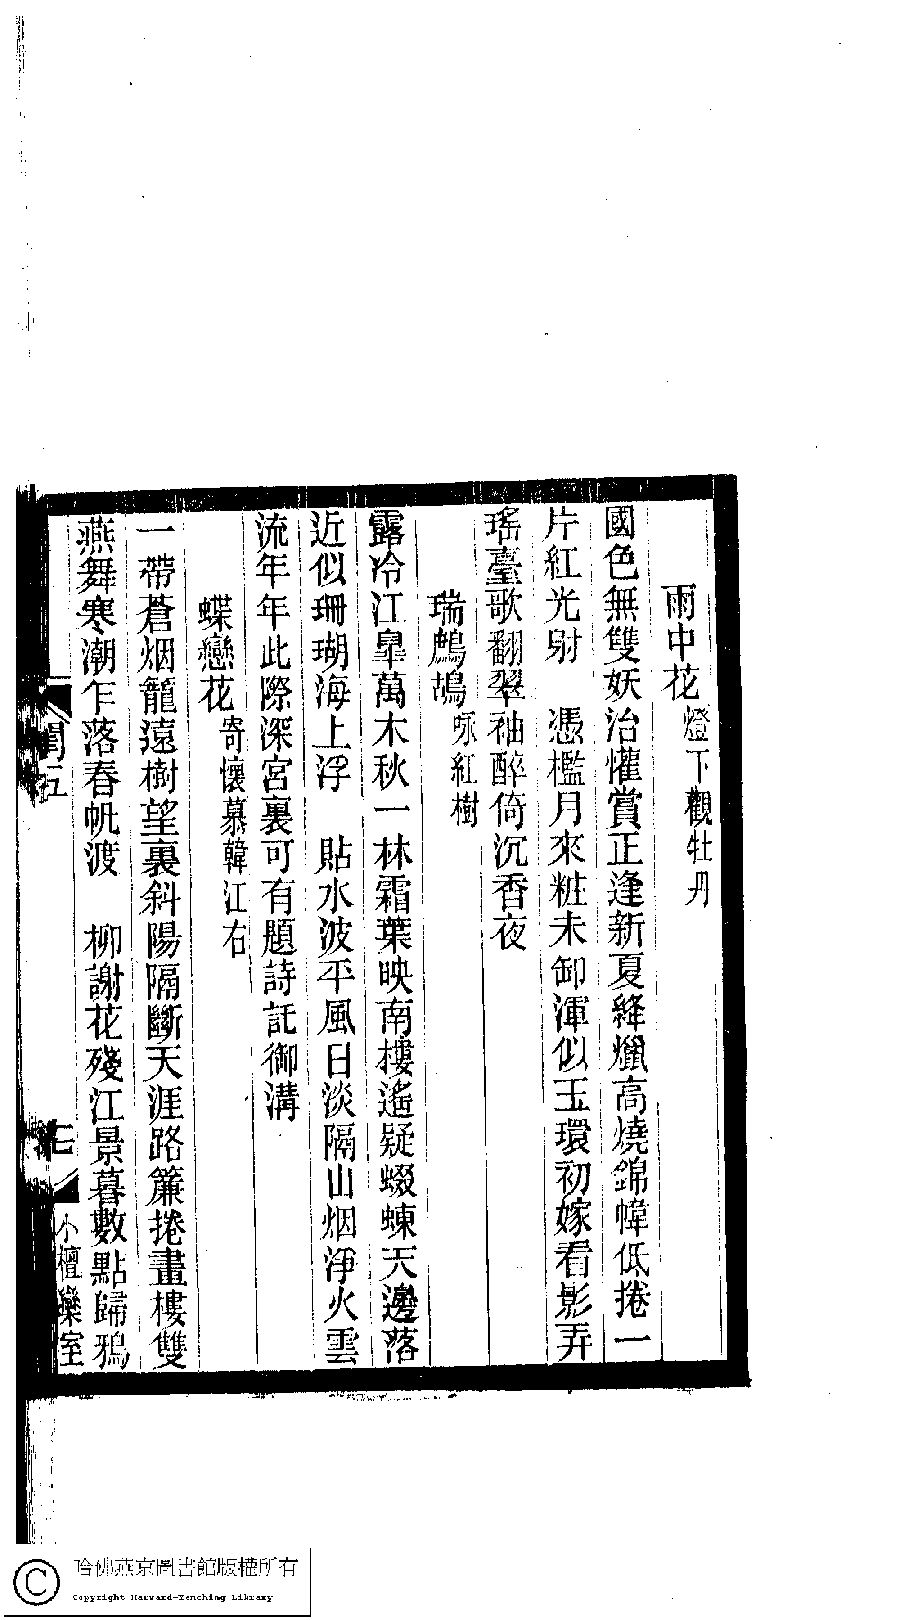 雨中花燈下觀牡丹
國色無雙妖冶懽賞正逢新夏絳爉高燒錦幃低捲一
片紅光射　憑檻月來粧未卸渾似玉環初嫁看影弄
瑤臺歌翻翠袖醉倚沉香夜
瑞鷓鴣咏紅樹
露冷江皐萬木秋一林霜葉映南樓遙疑蝃蝀天邊落
近似珊瑚海上浮　貼水波平風日淡隔山烟淨火雲
流年年此際深宮裏可有題詩託御溝
蝶戀花寄懷慕韓江右
一帶蒼烟籠遠樹望裏斜陽隔斷天涯路簾捲畫樓雙
燕舞寒潮乍落春帆渡　柳謝花殘江景暮數點歸鴉
閨五
七
小檀欒室
哈佛燕京圖書館版權所有
Copyright Harvard-Yenching Library